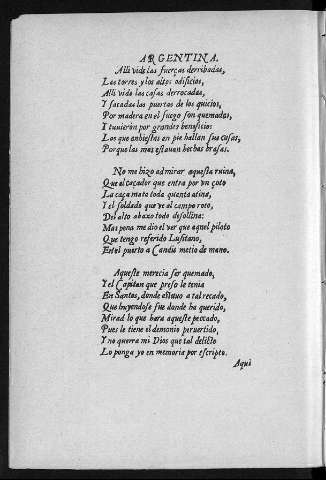 ARGENTINA.
Alli vide las fuerças derribadas,
Las torres y los altos edificios,
Alli vide las casas derrocadas,
Y sacadas las puertas de los quicios,
Por madera en el fuego son quemadas,
Y tuuieron por grandes beneficios
Los que enhiestas en pie hallan sus casas,
Porque las mas estauan hechas brasas.
No me hizo admirar aquesta ruina,
Que al caçador que entra por vn coto
La caça mata toda quanta atina,
Y el soldado que ve al campo roto,
Del alto abaxo todo desollina:
Mas pena me dio el ver que aquel piloto
Que tengo referido Lusitano,
En el puerto a Candis metio de mano.
Aqueste merecia ser quemado,
Y el Capitan que preso le tenia
En Santos, donde estauo a tal recado,
Que huyendose fue donde ha querido,
Mirad lo que hara aqueste peccado,
Pues le tiene el demonio peruertido,
Y no querra mi Dios que tal delicto
Lo ponga yo en memoria por escripto.
Aqui